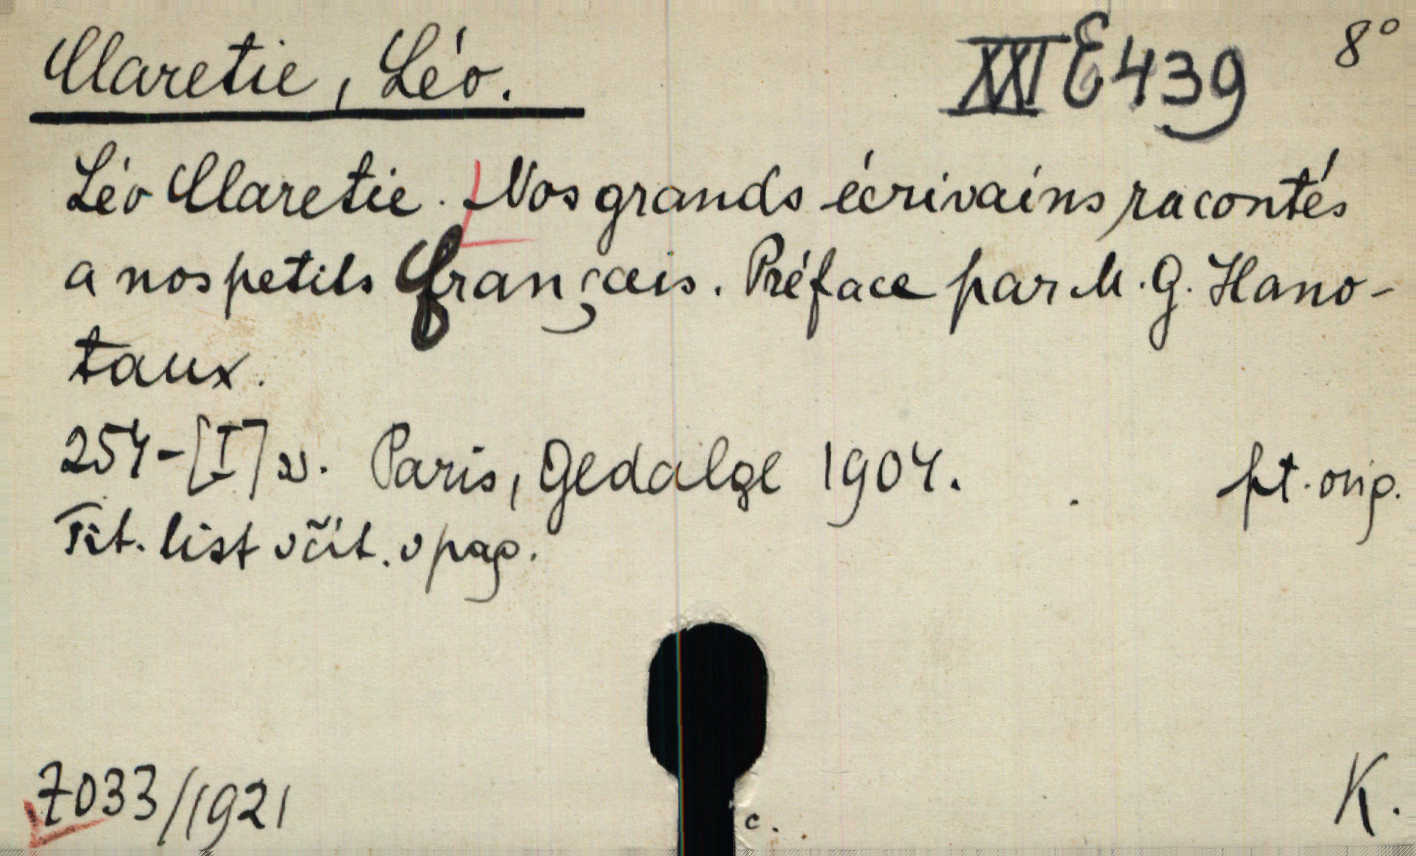 Claretie, Léo. XXI E 439 8°
Léo Claretie. Nos grands écrivains racontés
a nos petits français. Préface par M. G. Hano-
taux.
254-[I] s. Paris, Gedalge 1904. pt. orig.
Tit. list včít. v pag.
7033/1921 K.
c.